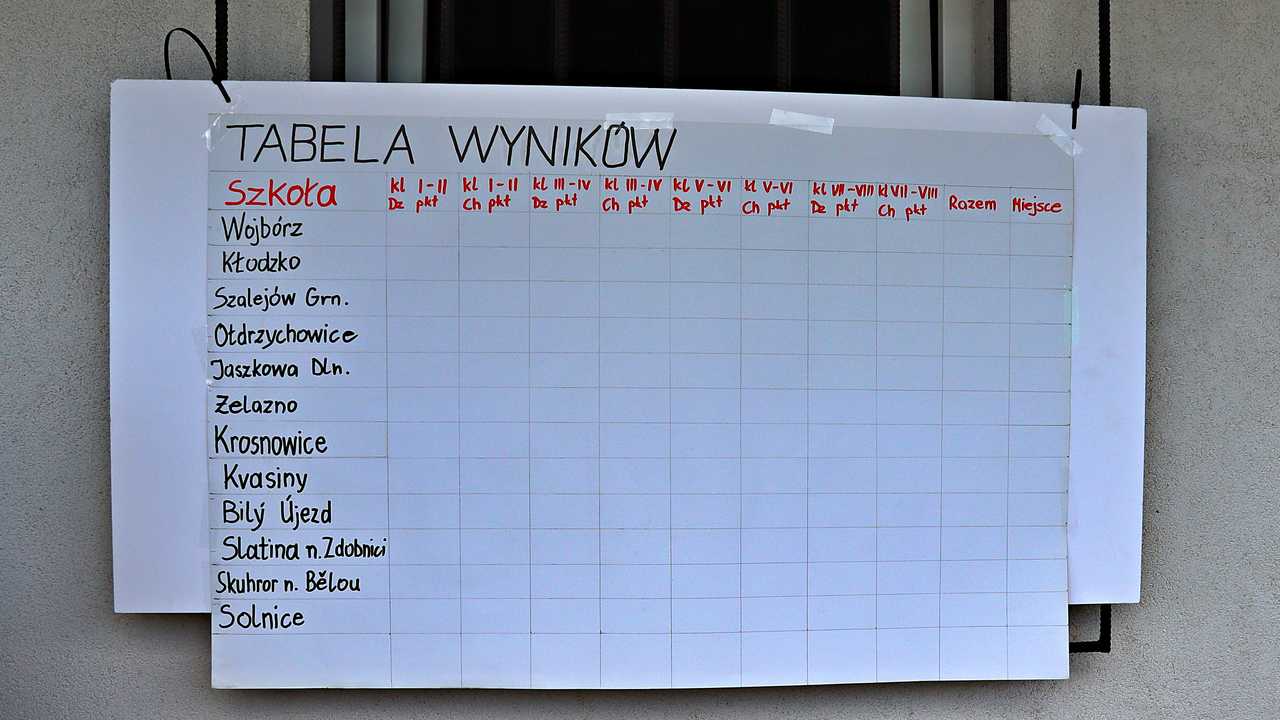 TABELA WYNIKÓW
Szkoła kl I-II Dz pkt kl I-II Ch pkt kl III-IV Dz pkt kl III-IV Ch pkt kl V-VI Dz pkt kl V-VI Ch pkt kl VII-VIII Dz pkt kl VII-VIII Ch pkt Razem Miejsce
Wojbórz
Kłodzko
Szalejów Grn.
Ołdrzychowice
Jaszkowa Dln.
Żelazno
Krosnowice
Kvasiny
Bilý Újezd
Slatina n. Zdobnici
Skuhror n. Bělou
Solnice